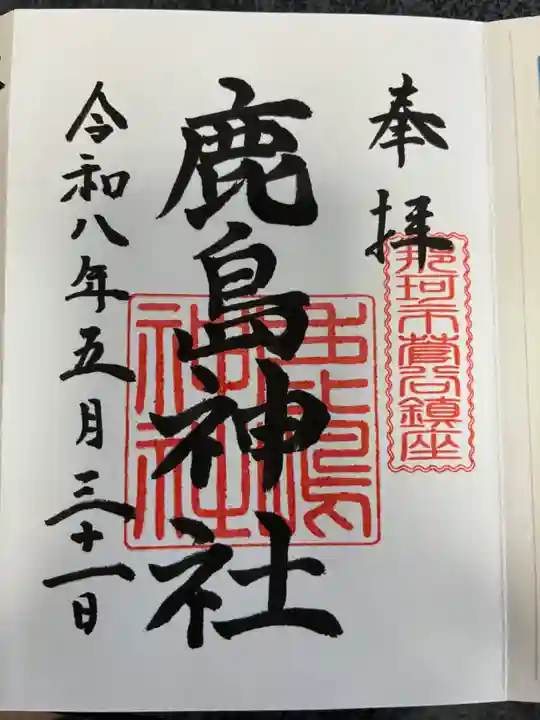 奉拝
那珂市菅谷鎮座
鹿島神社
鹿島神社
令和八年五月三十一日